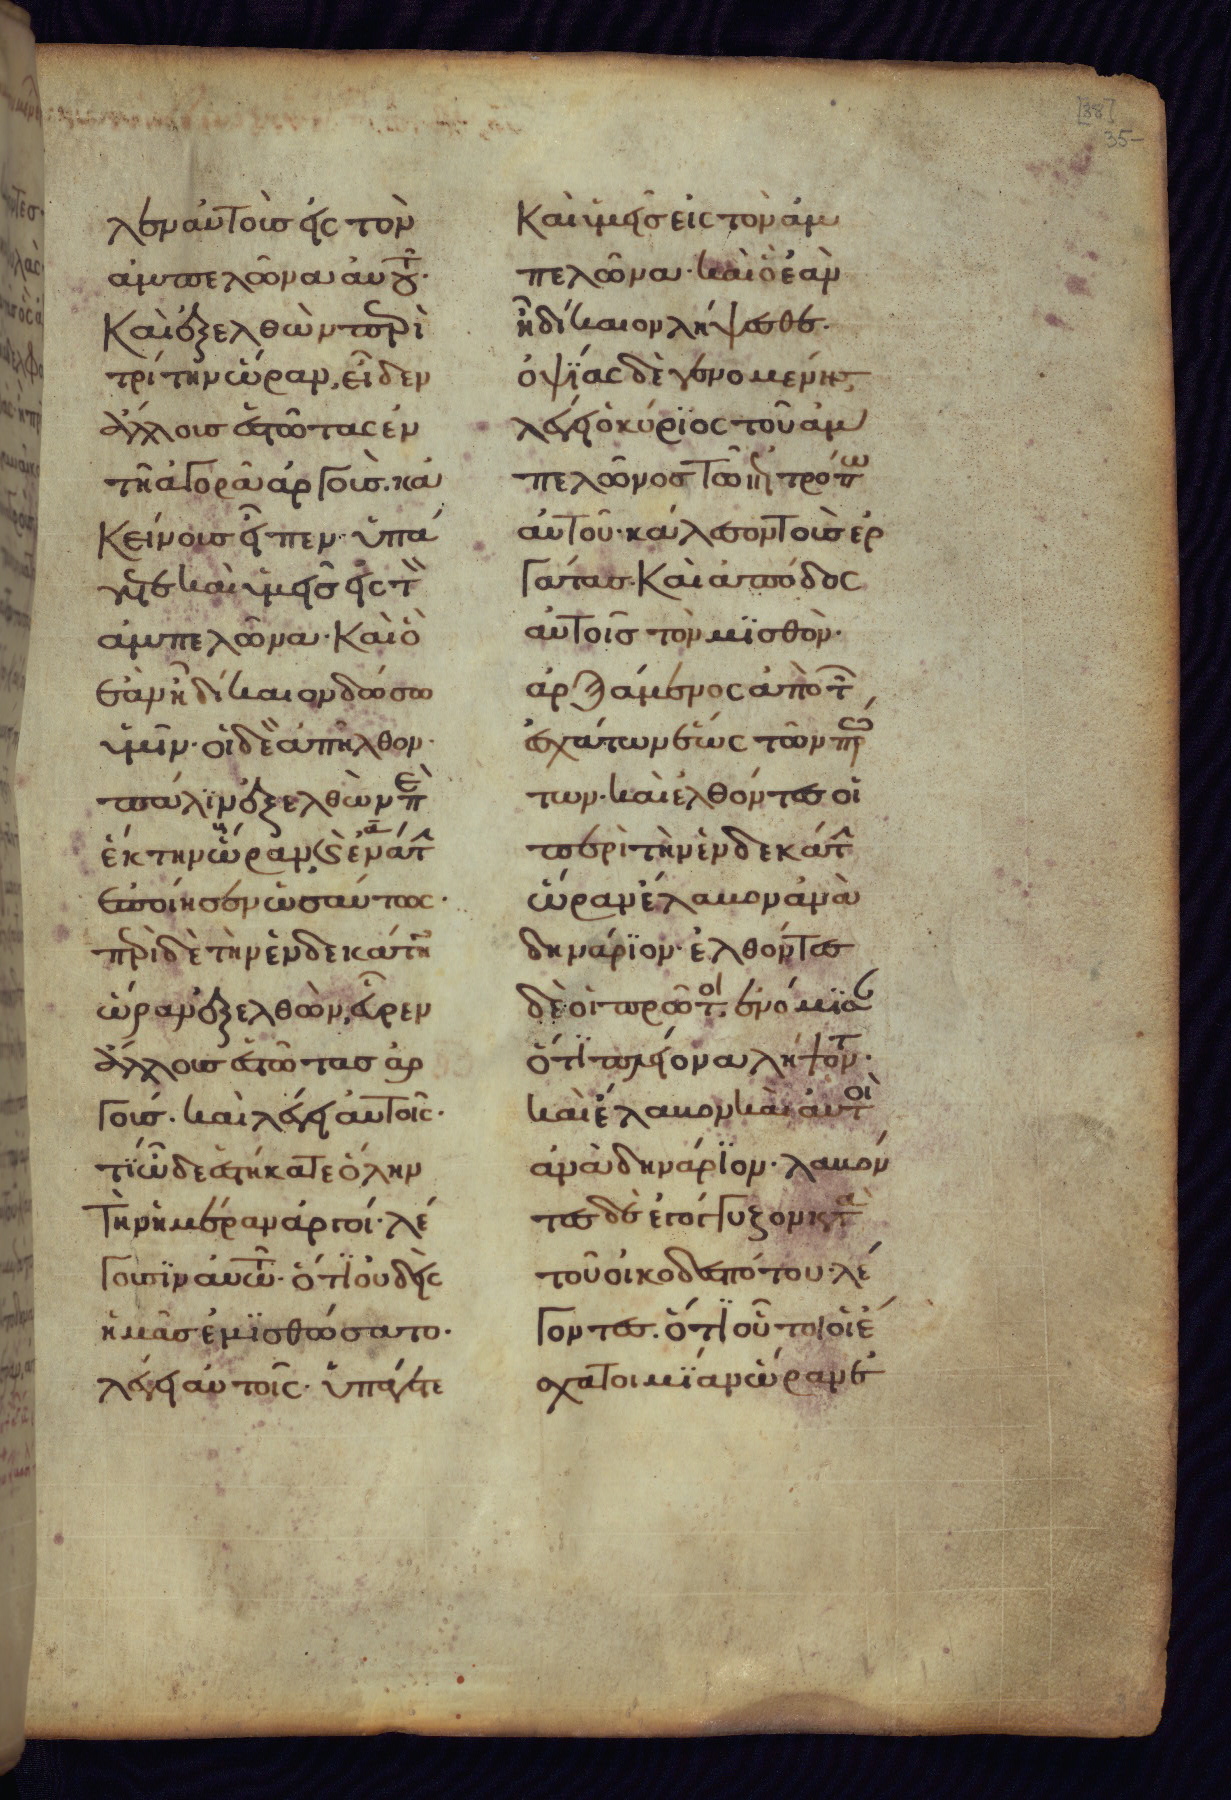 [38]
35-
λεν αὐτοὺς εἰς τὸν
ἀμπελῶνα αὐτοῦ·
Καὶ ἐξελθὼν περὶ
τρίτην ὥραν, εἶδεν
ἄλλους ἑστῶτας ἐν
τῆ ἀγορᾶ ἀργοὺς. κἀ
κείνοις εἶπεν· ὑπά
γετε καὶ ὑμεῖς εἰς τὸν
ἀμπελῶνα· Καὶ ὃ
ἐὰν ἦ δίκαιον δώσω
ὑμῖν· οἱ δὲ ἀπῆλθον·
πάλϊν ἐξελθὼν περὶ
ἕκτην ὥραν καὶ ἐνάτην
ἐποίησεν ὡσαύτως·
περὶ δὲ τὴν ἑνδεκάτην
ὥραν ἐξελθὼν, εὗρεν
ἄλλους ἑστῶτας ἀρ
γούς. καὶ λέγει αὐτοῖς·
τί ὧδε ἑστήκατε ὅλην
τὴν ἡμέραν ἀργοί· λέ
γουσϊν αὐτῶ· ὅτϊ οὐδεὶς
ἡμᾶς ἐμϊσθώσατο·
λέγει αὐτοῖς· ὑπάγετε
Καὶ ὑμεῖς εἰς τὸν ἀμ
πελῶνα· καὶ ὃ ἐὰν
ἦ δίκαιον λήψεσθε·
ὀψϊας δὲ γενομένης
λέγει ὁ κύρϊος τοῦ ἀμ
πελῶνος τῶ ἐπιτρόπω
αὐτοῦ· κάλεσον τοὺς ἐρ
γάτας· Καὶ ἀπόδος
αὐτοῖς τὸν μϊσθὸν·
ἀρξάμενος ἀπὸ τῶν
ἐσχάτων ἕως τῶν πρώ
των· καὶ ἐλθόντες οἱ
περὶ τὴν ἑνδεκάτην
ὥραν ἔλαβον ἀνὰ
δηνάρϊον· ἐλθόντες
δὲ οἱ πρῶτοι, ἐνόμϊσαν
ὅτϊ πλείονα λήψονται·
καὶ ἔλαβον καὶ αὐτοὶ
ἀνὰ δηνάρϊον· λαβόν
τες δὲ ἐγόγγυζον κατὰ
τοῦ οἰκοδεσπότου· λέ
γοντες. ὅτϊ οὗτοι οἱ ἔ
σχατοι μϊαν ὥραν ἐ